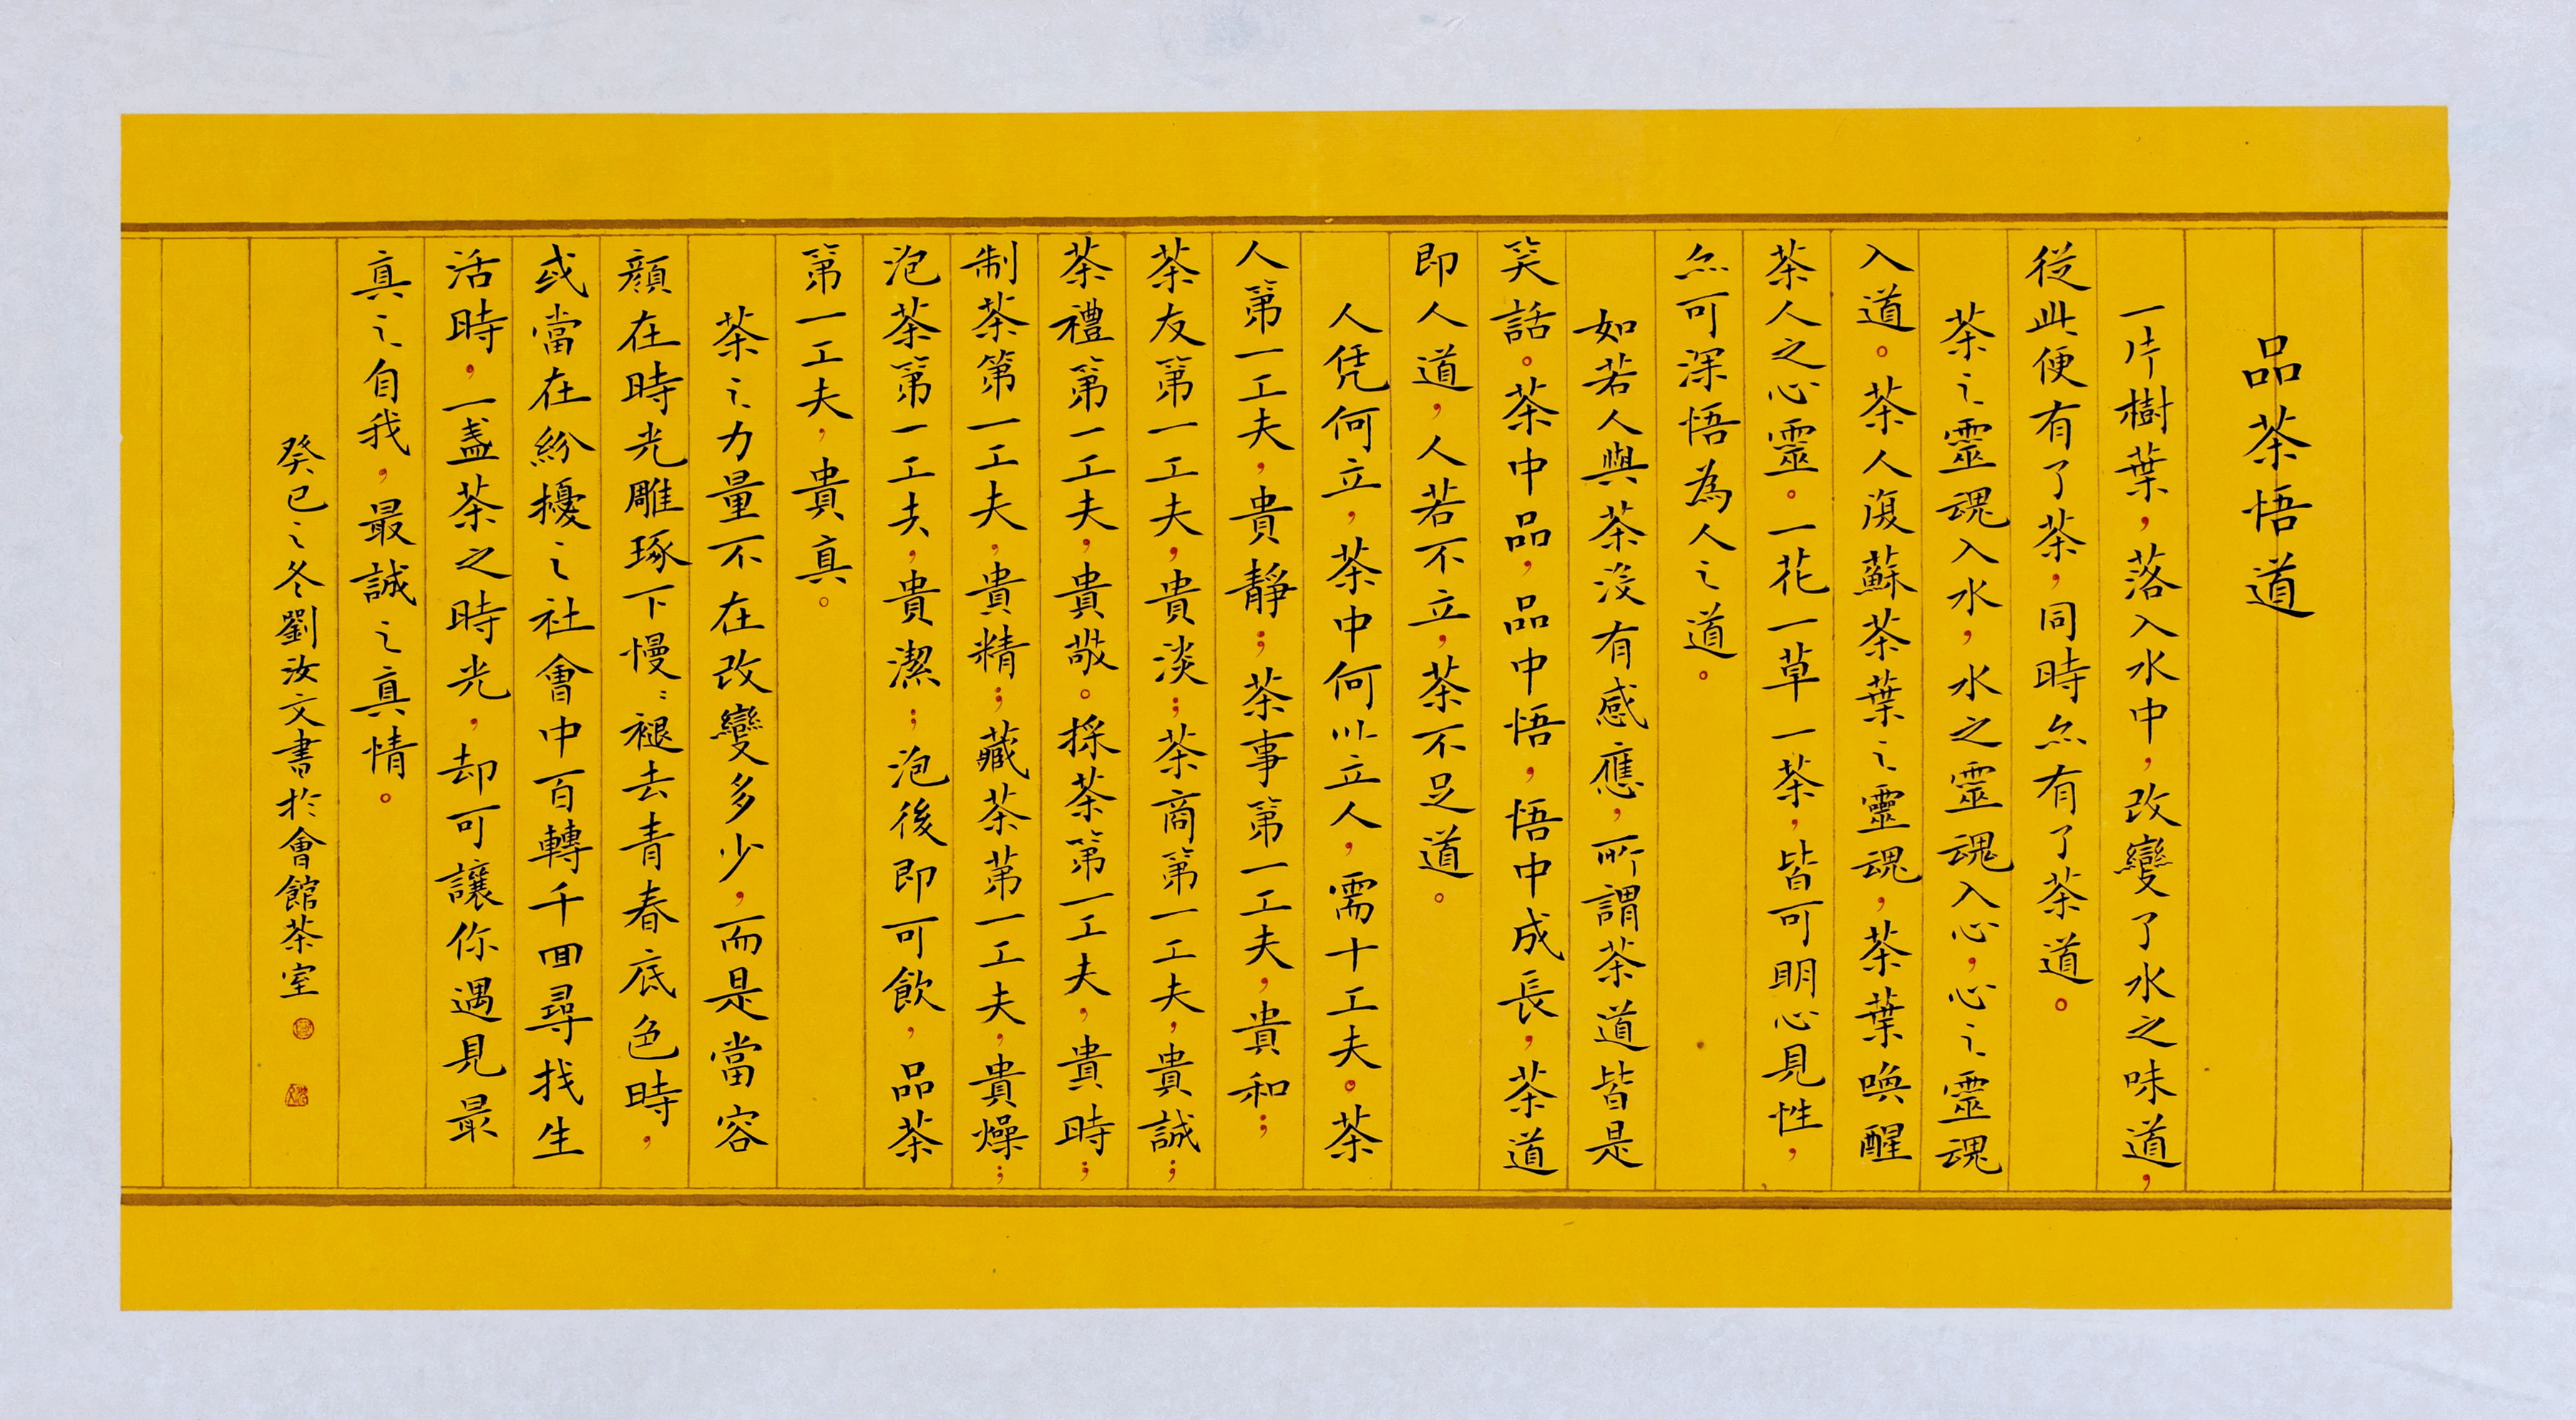 品茶悟道
一片樹葉，落入水中，改變了水之味道，
從此便有了茶，同時亦有了茶道。
茶之靈魂入水，水之靈魂入心，心之靈魂
入道。茶人復蘇茶葉之靈魂，茶葉喚醒
茶人之心靈。一花一草一茶，皆可明心見性，
亦可深悟為人之道。
如若人與茶沒有感應，所謂茶道皆是
笑話。茶中品，品中悟，悟中成長，茶道
即人道，人若不立，茶不足道。
人凭何立，茶中何以立人，需十工夫。茶
人第一工夫，貴靜；茶事第一工夫，貴和；
茶友第一工夫，貴淡；茶商第一工夫，貴誠；
茶禮第一工夫，貴敬。採茶第一工夫，貴時；
制茶第一工夫，貴精；藏茶苐一工夫，貴燥；
泡茶第一工夫，貴潔；泡後即可飲，品茶
第一工夫，貴真。
茶之力量不在改變多少，而是當容
顏在時光雕琢下慢：褪去青春底色時，
或當在紛擾之社會中百轉千回尋找生
活時，一盞茶之時光，却可讓你遇見最
真之自我，最誠之真情。
癸巳之冬劉汝文書於會館茶室